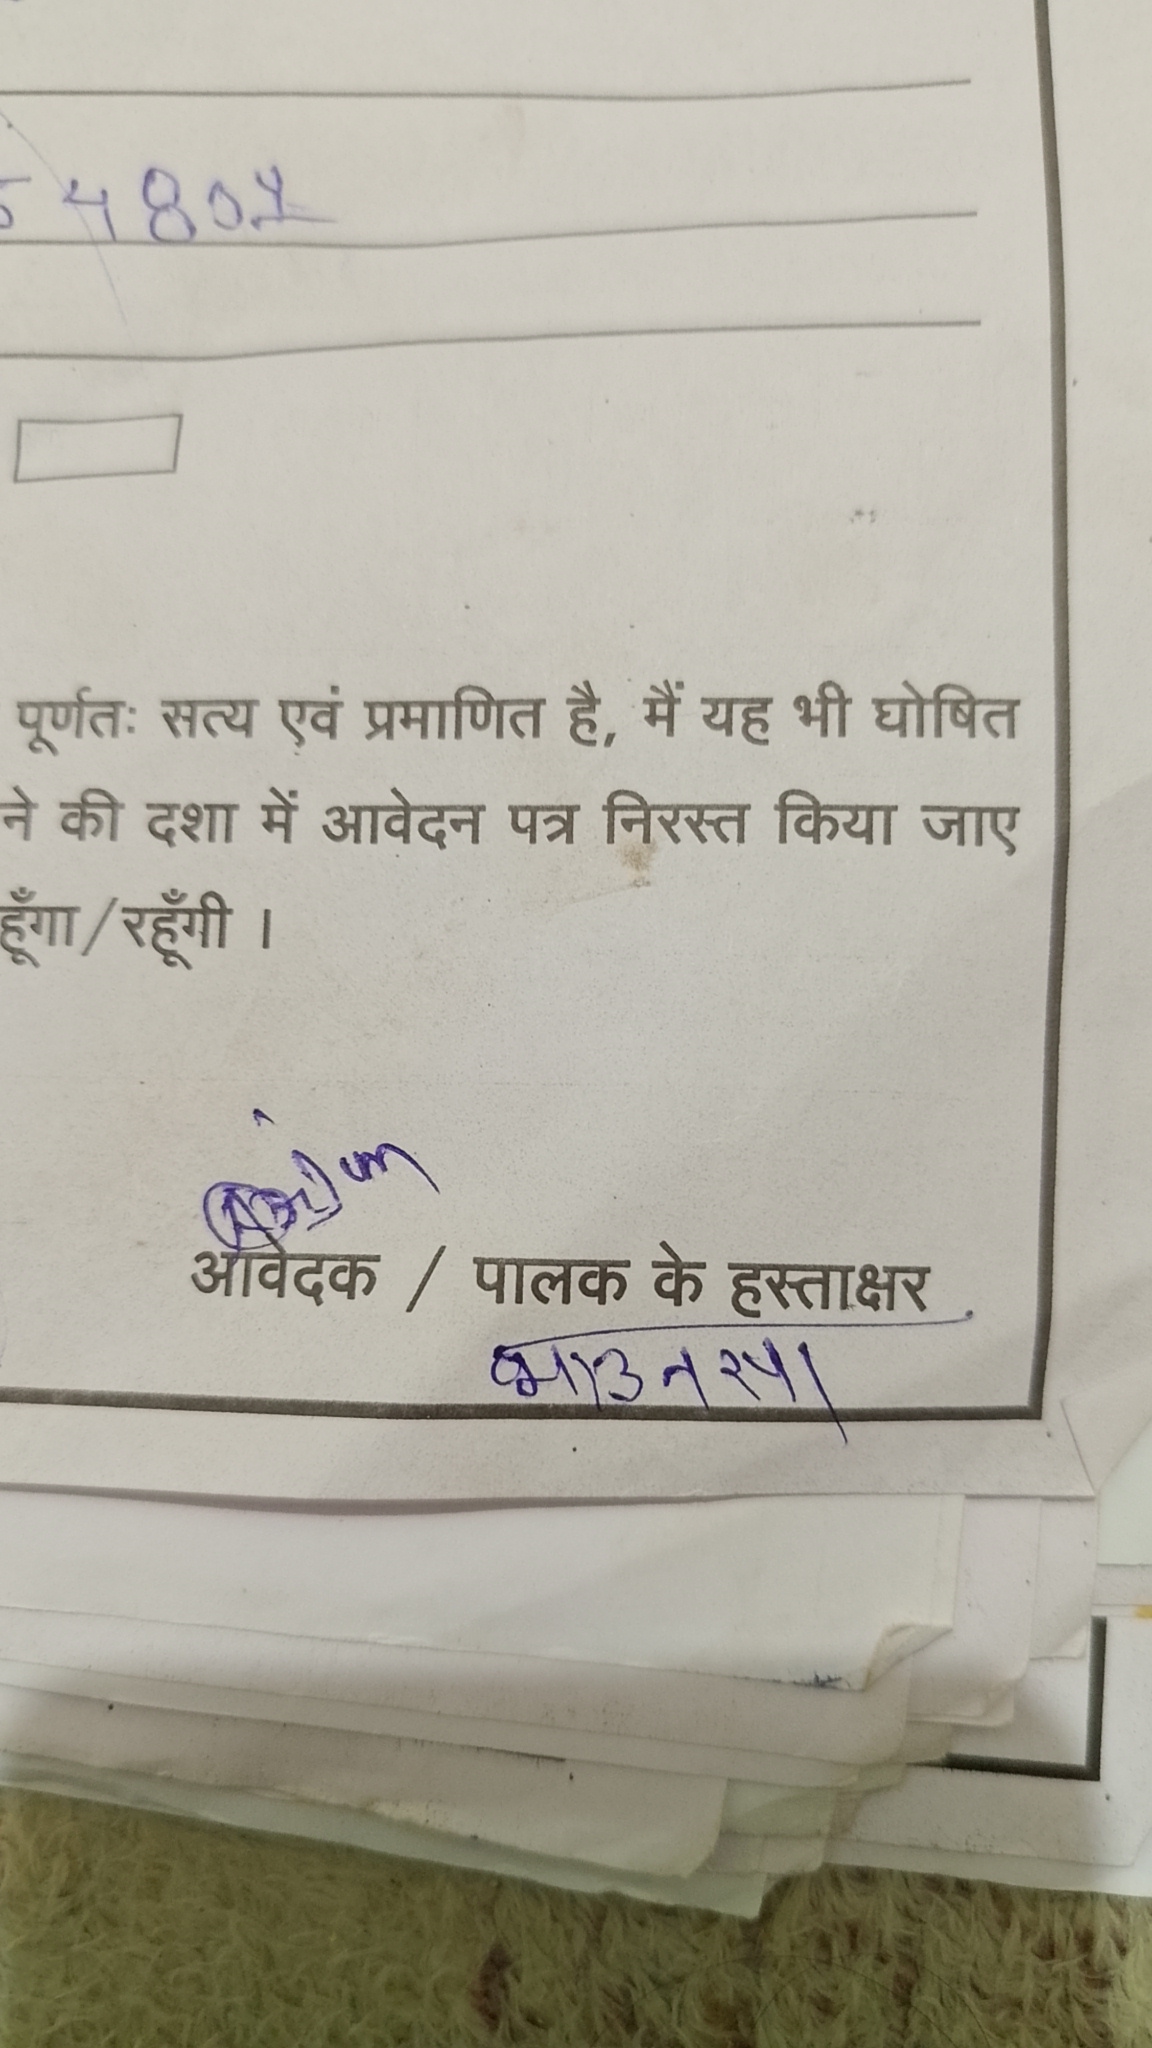 54801
पूर्णतः सत्य एवं प्रमाणित है, मैं यह भी घोषित
ने की दशा में आवेदन पत्र निरस्त किया जाए
हूँगा/रहूँगी ।
आवेदक / पालक के हस्ताक्षर